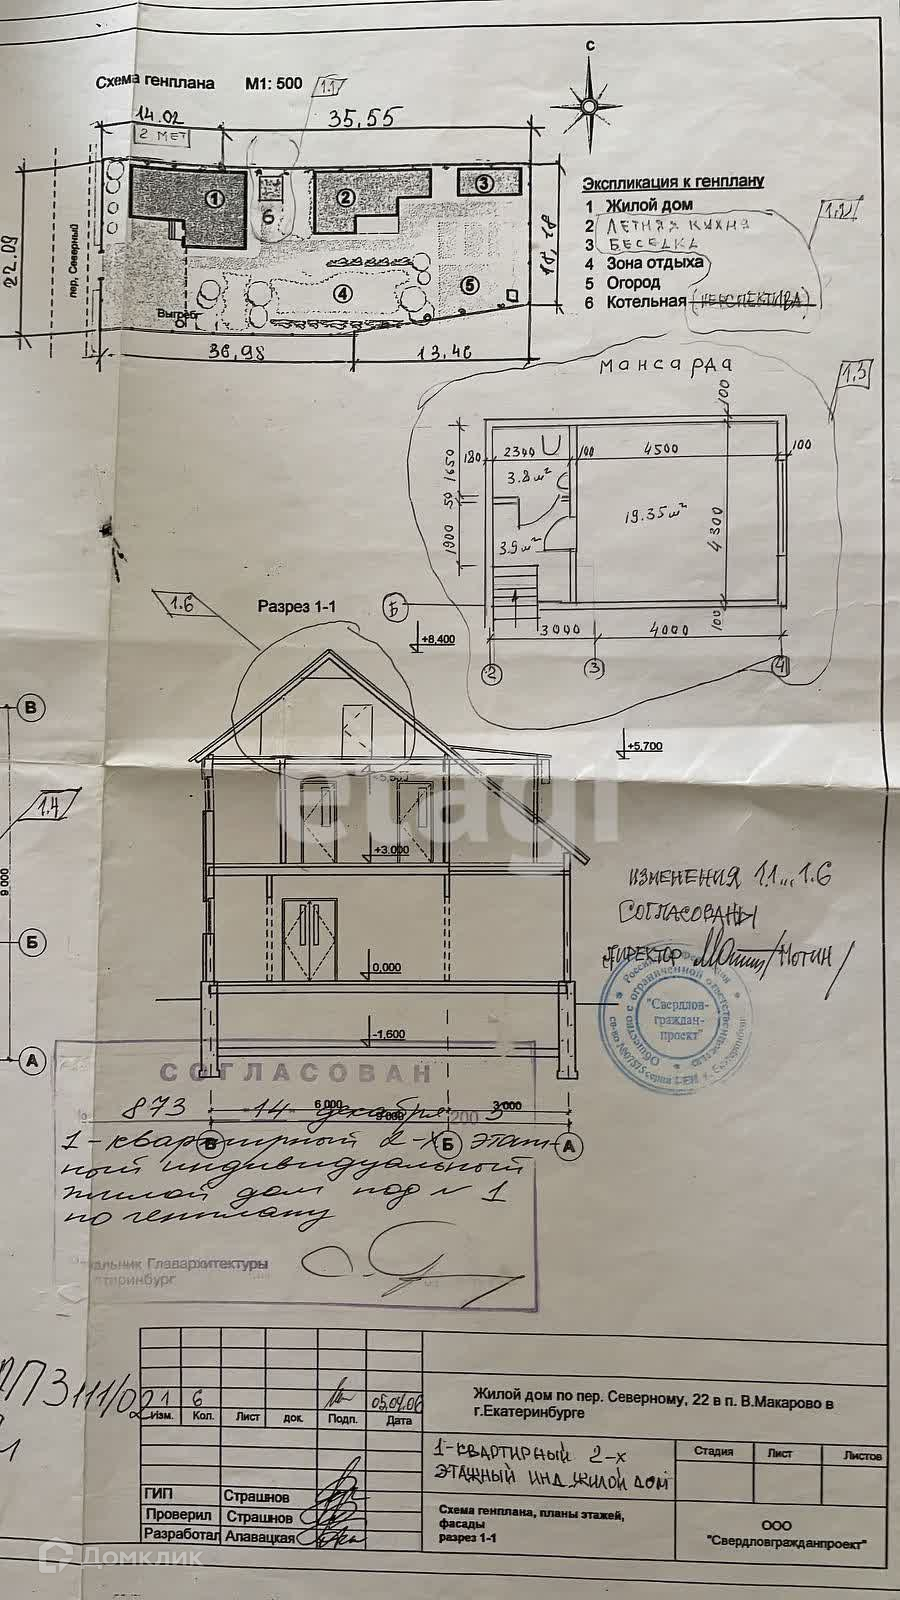 Схема генплана М1: 500 1.1
С
14.02 35,55
2 МЕТ
22.09
пер. Северный
1 6 2 3
4 5
18,28
Выгреб
36,98 13,46
Экспликация к генплану
1 Жилой дом
2 ЛЕТНЯЯ КУХНЯ
3 БЕСЕДКА
4 Зона отдыха
5 Огород
6 Котельная (ПЕРСПЕКТИВА)
1.2
мансарда
1.3
100
180 2300 100 4500 100
1650
50
1900
3.8 м²
19.35 м²
4300
3.9 м²
100
Б
3000 4000
2 3 4
1.6
Разрез 1-1
+8,400
+5,700
В
1.4
9 000
Б
А
+3.000
0,000
-1,600
6 000 3 000
9 000
В Б А
ИЗМЕНЕНИЯ 1.1...1.6
СОГЛАСОВАНЫ
ДИРЕКТОР /МОТИН/
"Свердлов-
граждан-
проект"
СОГЛАСОВАН
873 "14" декабря 200
1-квартирный 2-х этаж-
ный индивидуальный
жилой дом под № 1
по генплану
Главархитектуры
etagi
111/02
1 6 05.04.06
Изм. Кол. Лист док. Подп. Дата
ГИП Страшнов
Проверил Страшнов
Разработал Алавацкая
Жилой дом по пер. Северному, 22 в п. В.Макарово в
г.Екатеринбурге
1-КВАРТИРНЫЙ 2-Х
ЭТАЖНЫЙ ИНД. ЖИЛОЙ ДОМ
Стадия Лист Листов
Схема генплана, планы этажей,
фасады
разрез 1-1
ООО
"Свердловгражданпроект"
Домклик